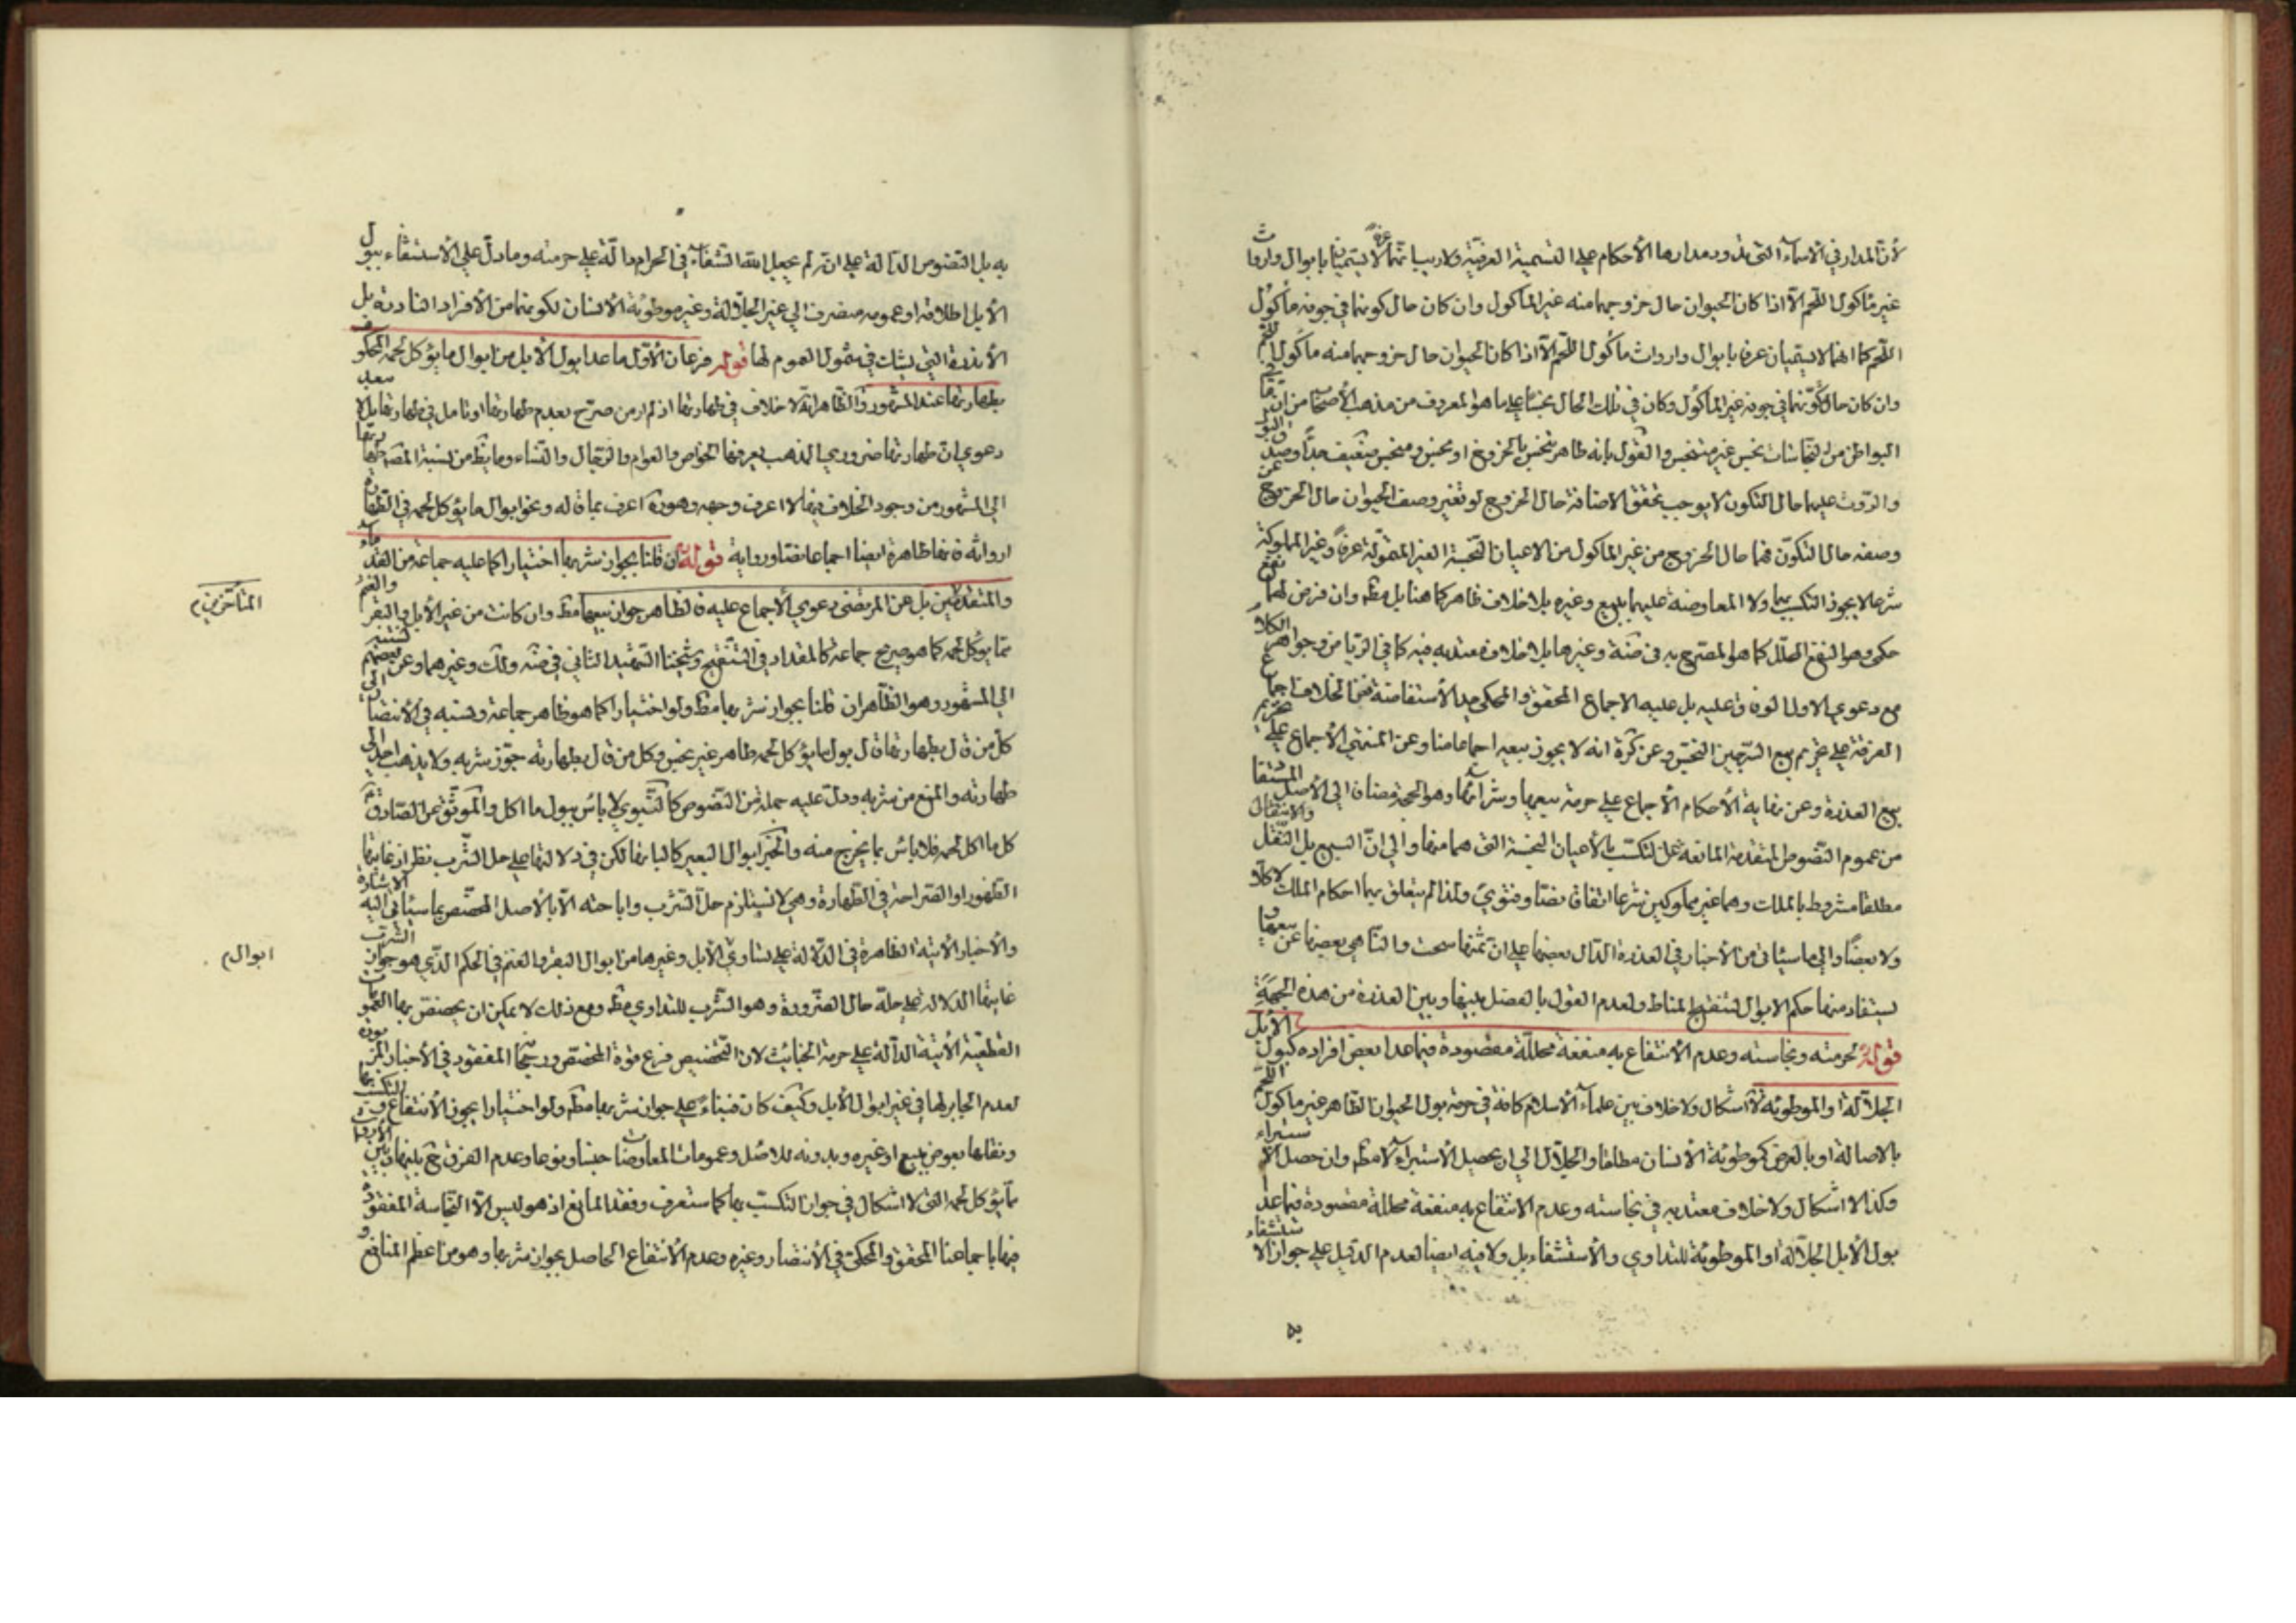 لأنّ المدار في الأسماء التى تدور مدارها الأحكام على التسمية العرفيّة ولا ريب انهما لا يسميان بابوال وارواث
غير مأكول اللحم الّا اذا كان الحيوان حال خروجهما منه غير المأكول وان كان حال كونهما في جوفه مأكول
اللحم كما انهما لا يسميان عرفا بابوال وارواث مأكول اللحم الّا اذا كان الحيوان حال خروجهما منه مأكول اللحم
وان كان حال تكوّنهما في جوفه غير المأكول وكان في تلك الحال نجسا على ما هو المعروف من مذهب الأصحاب من ان
البواطن من النجاسات نجس غير متنجس والقول بانه طاهر متنجس بالخروج او نجس ومنجس ضعيف جدّا وصدق البول
والروث عليهما حال التكون لا يوجب تحقق الاضافة حال الخروج لو تغير وصف الحيوان حال الخروج عن
وصفه حال التكوّن فهما حال الخروج من غير المأكول من الاعيان النجسة الغير المتموّلة عرفًا وغير المملوكة
شرعا لا يجوز التكسب بهما ولا المعاوضة عليهما ببيع وغيره بلا خلاف ظاهر كما هنا بل مط وان فرض لهما نفع
حكمى وهو النفع المحلّل كما هو المصرّح به في ضة وغيرها بلا خلاف معتد به فيه كما في الريا من وجواهر الكلام
مع دعوى الاول الوفاق عليه بل عليه الاجماع المحقق والمحكى حد الأستفاضة فعن الخلاف اجماع
الفرقة على تحريم بيع السرجين النجس وعن كرة انه لا يجوز بيعه اجماعا منا وعن المنتهى الأجماع على تحريم
بيع العذرة وعن نهاية الأحكام الأجماع على حرمة بيعها وشرائها وهو الحجة مضافا الى الأصل المستفاد
من عموم النصوص المتقدمة المانعة عن التكسّب بالأعيان النجسة التى هما منها والى انّ البيع بل النّقل والانتقال
مطلقا مشروط بالملك وهما غير مملوكين شرعا اتفاقا نصّا وفتوىً ولذا لم يتعلق بهما احكام الملك لا كلا
ولا بعضًا والى ما سيأتى من الأخبار في العذرة الدّال بعضها على انّ ثمنها سحت والناهى بعضها عن بيعها و
يستفاد منها حكم الابوال لتنقيح المناط ولعدم القول بالفصل بينها وبين العذرة من هذه الجهة
قوله لحرمته ونجاسته وعدم الأنتفاع به منفعة محلّلة مقصودة فيما عدا بعض افراده كبول الأبل
الجلّالة او الموطوئة لا اشكال ولا خلاف بين علماء الأسلام كافة في حرمة بول الحيوان الطاهر غير مأكول اللحم
بالاصالة او بالعرض كموطوئة الأنسان مطلقا والجلّال الى ان يحصل الأستبراء لا مط وان حصل الاستبراء
وكذا لا اشكال ولا خلاف معتد به في نجاسته وعدم الانتفاع به منفعة محللة مقصودة فيما عدا
بول الأبل الجلّالة او الموطوئة للتداوى والأستشفاء بل ولا فيه ايضا لعدم الدّليل على جواز الاستشفاء
به
به بل النصوص الدّالة على انّه لم يجعل الله الشفاء في الحرام دالّة على حرمته وما دلّ على الأستشفاء ببول
الأبل اطلاقه او عمومه منصرف الى غير الجلّالة وغير موطوئة الأنسان لكونهما من الأفراد النادرة بل
الأندرة التى يشك في شمول العموم لها قوله فرعان الأوّل ما عدا بول الأبل من ابوال ما يؤكل لحمه المحكوم
بطهارتها عند المشهور والظاهر انّه لا خلاف في طهارتها اذ لم ار من صرّح بعدم طهارتها او تأمل في طهارتها بل لا يبعد
دعوى ان طهارتها ضرورى المذهب يعرفها الخواص والعوام والرّجال والنّساء وما يظهر من نسبة المصه طهارتها
الى المشهور من وجود الخلاف فيها لا اعرف وجهه وهوره اعرف بما قاله ونحو ابوال ما يؤكل لحمه في الطهارة
ارواثه فانها طاهرة ايضا اجماعا نصّا ورواية قوله ان قلنا بجواز شربها اختيارا كما عليه جماعة من القدماء
والمتاخرين بل عن المرتضى دعوى الأجماع عليه فالظاهر جواز بيعها مط وان كانت من غير الأبل والبقر والغنم
ممّا يؤكل لحمه كما هو صريح جماعة كالمقداد في التنقيح وشيخنا الشهيد الثانى في ضه ولك وغيرهما وعن بعضهم نسبته
الى المشهور وهو الظّاهر ان قلنا بجواز شربها مط ولو اختيارا كما هو ظاهر جماعة ونسبه في الأنتصار الى
كل من قال بطهارتها قال بول ما يؤكل لحمه طاهر غير نجس وكل من قال بطهارته جوّز شربه ولا يذهب احد الى
طهارته والمنع من شربه ودلّ عليه جملة من النّصوص كالنّبوى لا بأس ببول ما اكل والموثّق عن الصّادق ثم
كل ما اكل لحمه فلا بأس بما يخرج منه والخبر ابوال البعير كالبانها لكن في دلالتها على حل الشّرب نظر اذ غايتها
الظهور او الصراحة في الطّهارة وهى لا تستلزم حلّ الشّرب واباحته الّا بالأصل المخصّص بما سيأتى اليه الاشارة
والأخبار الآتية الظاهرة في الدّلالة على تساوى الأبل وغيرها من ابوال البقر والغنم في الحكم الّذى هو جواز الشرب
غايتها الدلالة على حلّه حال الضّرورة وهو الشّرب للتداوى مط ومع ذلك لا يمكن ان يخصّص بها العمومات
القطعية الآتية الدالّة على حرمة الخبائث لانّ التّخصيص فرع قوّة المخصّص ورجحانها المفقود في الأخبار المزبورة
لعدم الجابر لها في غير ابوال الأبل وكيف كان فبناءً على جواز شربها مط ولو اختيارا يجوز الأنتفاع والتكسب بها
ونقلها بعوض ببيع او غيره وبدونه للاصل وعمومات المعاوضات جنسا ونوعا وعدم الفرق ح بينها وبين الأرواث
ممّا يؤكل لحمه التى لا اشكال في جواز التكسّب بها كما ستعرف وفقد المانع اذ هو ليس الّا النّجاسة المفقودة
فيها باجماعنا المحقق والمحكى في الأنتصار وغيره وعدم الأنتفاع الحاصل بجواز شربها وهو من اعظم المنافع و
المتأخرين م
ابوال م